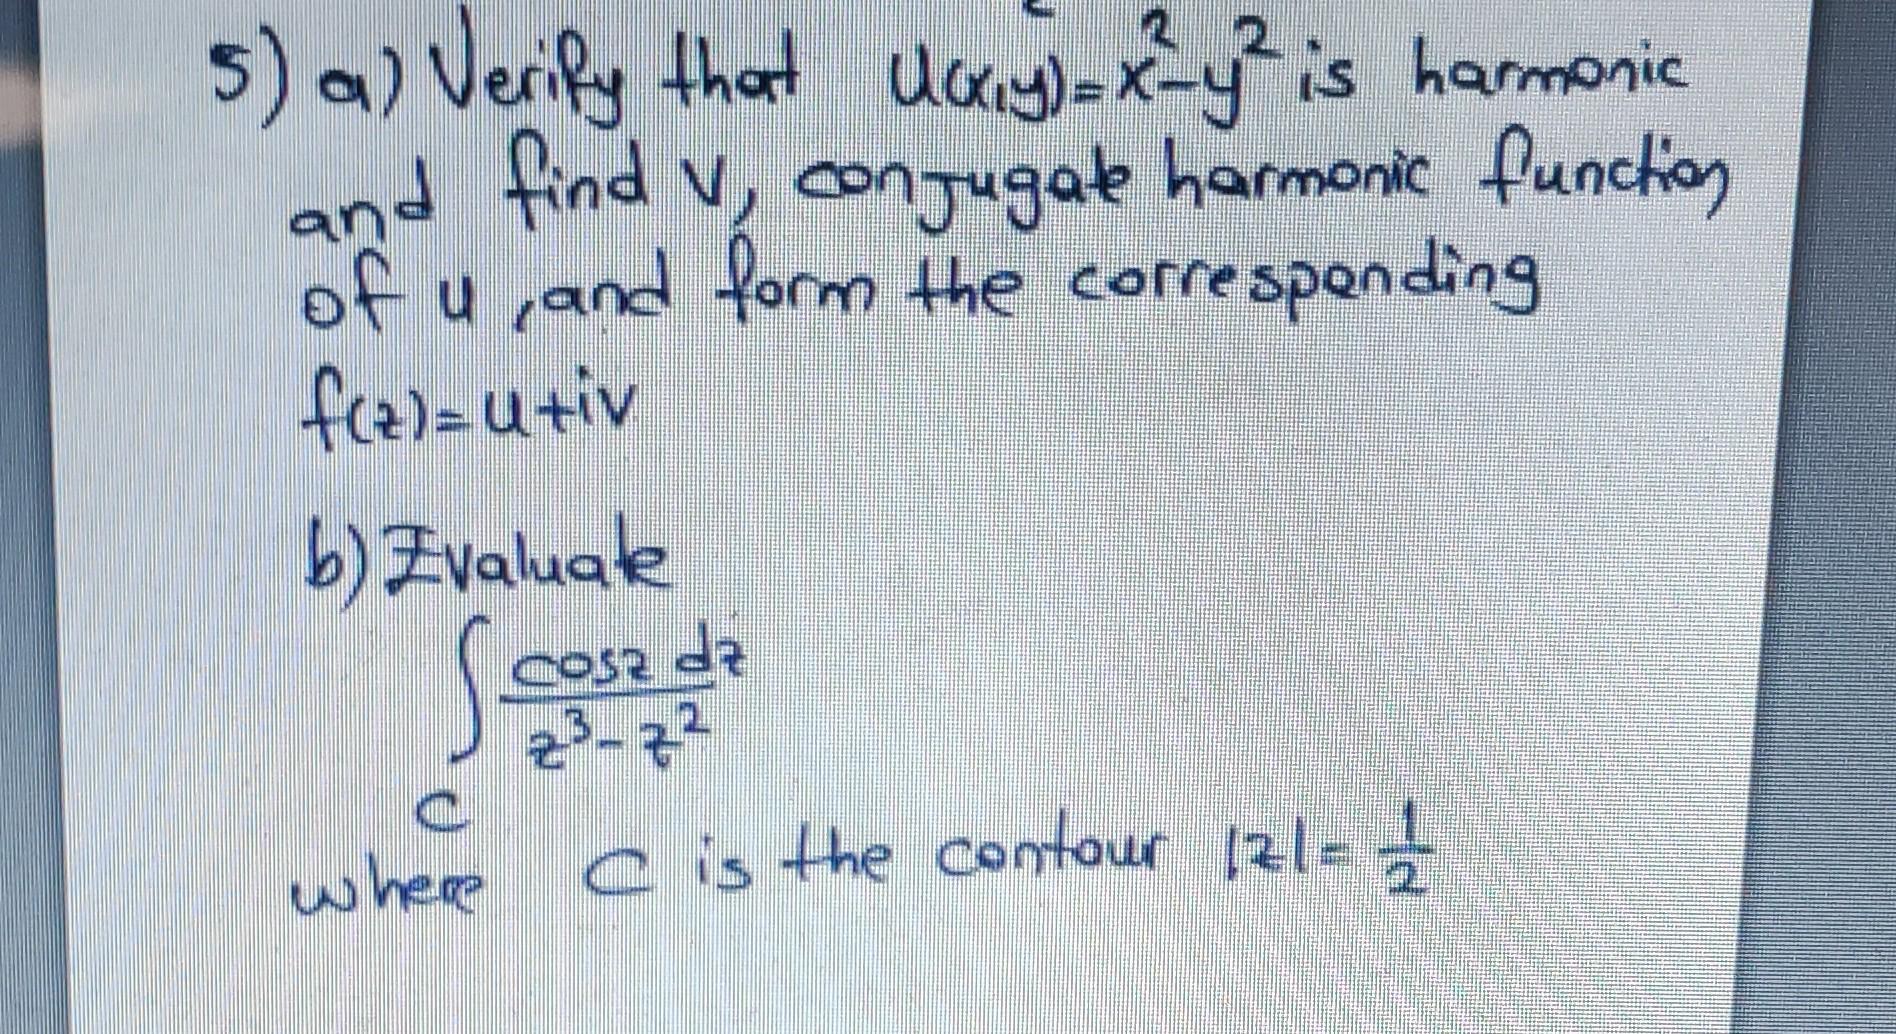 5) a) Verify that u(x,y)=x²-y² is harmonic
and find v, conjugate harmonic function
of u, and form the corresponding
f(z)=u+iv
b) Evaluate
∫ cosz dz
z³-z²
C
where C is the contour |z|= 1/2